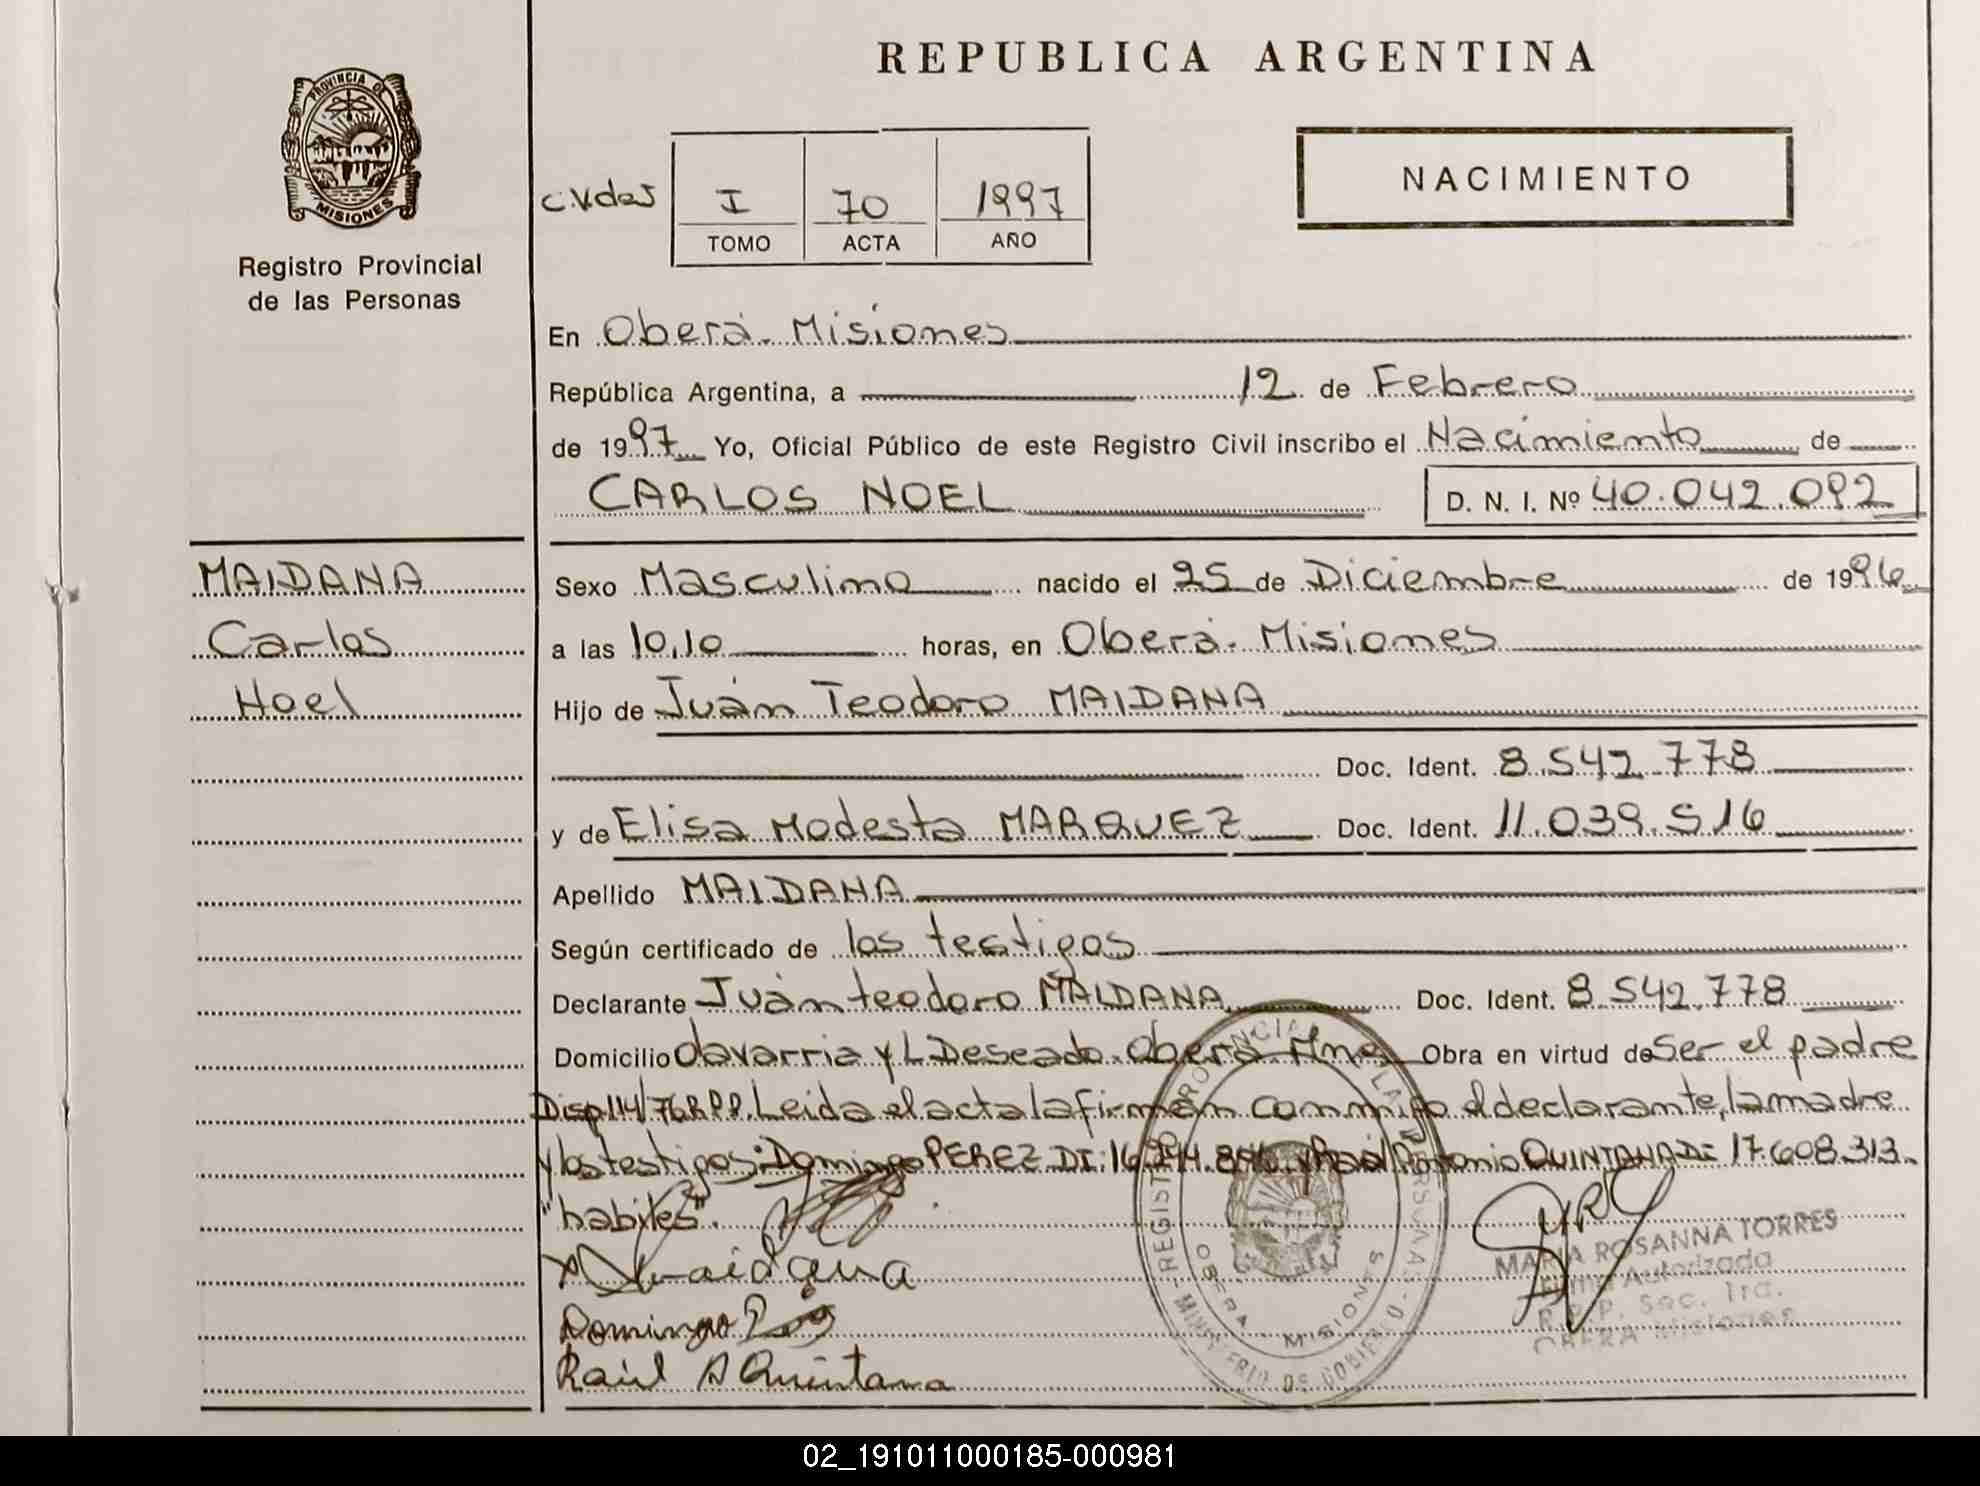 REPUBLICA ARGENTINA
PROVINCIA DE
MISIONES
Registro Provincial
de las Personas
C.Vdas
I 70 1997
TOMO ACTA AÑO
NACIMIENTO
En Oberá. Misiones
República Argentina, a 12 de Febrero
de 1997 Yo, Oficial Público de este Registro Civil inscribo el Nacimiento de
CARLOS NOEL D. N. I. Nº 40.042.092
MAIDANA
Carlos
Noel
Sexo Masculino nacido el 25 de Diciembre de 1996
a las 10,10 horas, en Oberá. Misiones
Hijo de Juán Teodoro MAIDANA
Doc. Ident. 8.542.778
y de Elisa Modesta MARQUEZ Doc. Ident. 11.039.516
Apellido MAIDANA
Según certificado de los testigos
Declarante Juán teodoro MAIDANA Doc. Ident. 8.542.778
Domicilio Olavarria y L Deseado. Oberá Mnes Obra en virtud de Ser el padre
Disp 114/76 R.P.P. Leida el acta la firman conmigo el declarante, la madre
y los testigos: Domingo PEREZ DI: y Raúl Antonio QUINTANA DI: 17.608.313.
"habiles".
Maidana
Domingo
Raúl A Quintana
REGISTRO PROVINCIAL DE LAS PERSONAS - MINISTERIO DE GOBIERNO
OBERA - MISIONES
MARIA ROSANNA TORRES
Firma Autorizada
R.P.P. Sec. 1ra.
OBERA Misiones
02_191011000185-000981